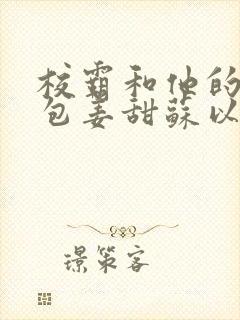 校霸和他的
包姜甜蘇以
璟策客